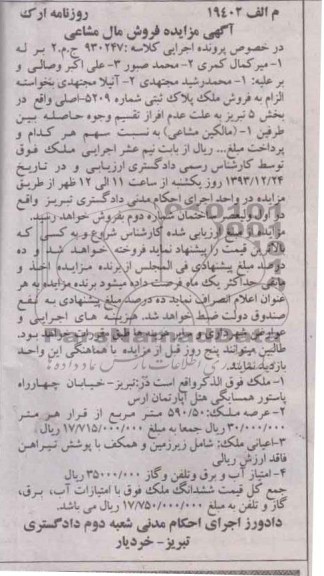 م الف ۱۹۴۰۲ روزنامه ارک
آگهی مزایده فروش مال مشاعی
در خصوص پرونده اجرایی کلاسه :۹۳۰۲۴۷ ج.م.۲ بر له
۱-میرکمال کمری ۲-محمد صبور ۳-علی اکبر وصالی و
بر علیه: ۱-محمدرشید مجتهدی ۲-آتیلا مجتهدی بخواسته
الزام به فروش ملک پلاک ثبتی شماره ۵۲۰۹-اصلی واقع در
بخش ۵ تبریز به علت عدم افراز تقسیم وجوه حاصله بین
طرفین ۱-(مالکین مشاعی) به نسبت سهم هر کدام و
پرداخت مبلغ... ریال از بابت نیم عشر اجرایی ملک فوق
توسط کارشناس رسمی دادگستری ارزیابی و در تاریخ
۱۳۹۳/۱۲/۲۴ روز یکشنبه از ساعت ۱۱ الی ۱۲ ظهر از طریق
مزایده در واحد اجرای احکام مدنی دادگستری تبریز واقع
در اول ولیعصر ساختمان شماره دوم بفروش خواهد رسید.
مزایده از مبلغ ارزیابی شده کارشناس شروع و به کسی که
بالاترین قیمت را پیشنهاد نماید فروخته خواهد شد و ده
درصد مبلغ پیشنهادی فی المجلس از برنده مزایده اخذ و
مابقی حداکثر یک ماه فرصت داده میشود برنده مزایده به هر
عنوان اعلام انصراف نماید ده درصد مبلغ پیشنهادی به نفع
صندوق دولت ضبط خواهد شد. هزینه های اجرایی و
عوارض شهرداری و سایر هزینه ها طبق مقررات خواهد بود.
طالبین میتوانند پنج روز قبل از مزایده با هماهنگی این واحد
بازدید نمایند.
۱-ملک فوق الذکر واقع است در:تبریز-خیابان چهارراه
پاستور همسایگی هتل آپارتمان ارس
۲-عرصه ملک:۵۹۰/۵۰ متر مربع از قرار هر متر
۳۰/۰۰۰/۰۰۰ ریال جمعا به مبلغ ۱۷/۷۱۵/۰۰۰/۰۰۰ ریال
۳-اعیانی ملک: شامل زیرزمین و همکف با پوشش تیرآهن
فاقد ارزش ریالی
۴-امتیاز آب و برق و تلفن و گاز ۳۵۰۰۰/۰۰۰ ریال
جمع کل قیمت ششدانگ ملک فوق با امتیازات آب، برق،
گاز و تلفن به مبلغ ۱۷/۷۵۰/۰۰۰/۰۰۰ ریال می باشد.
دادورز اجرای احکام مدنی شعبه دوم دادگستری
تبریز- خردیار